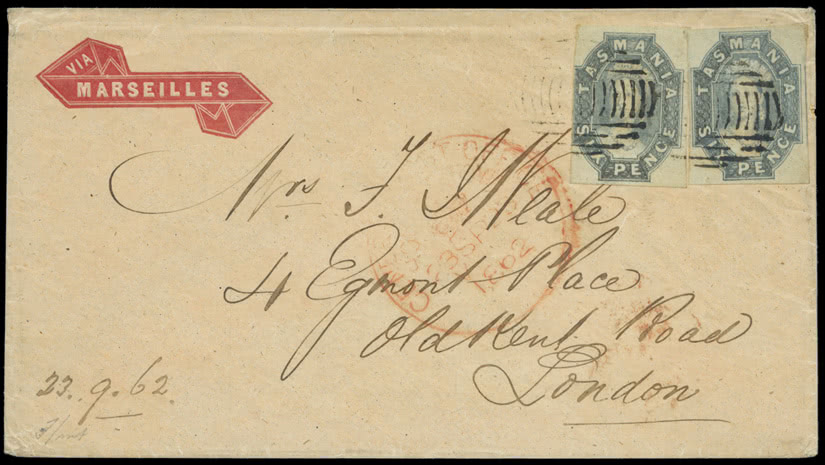 VIA
MARSEILLES
TASMANIA
SIX PENCE
TASMANIA
SIX PENCE
Mrs. J. Neale
4 Egmont Place
Old Kent Road
London
23. 9. 62.